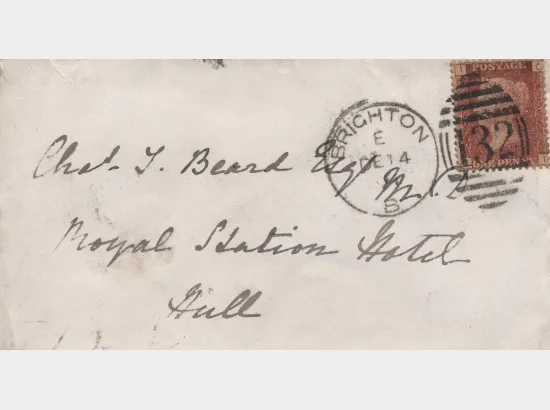 POSTAGE
BRIGHTON
E
DE 14
B
132
ONE PENNY
Chas. T. Beard Esq M.D
Royal Station Hotel
Hull